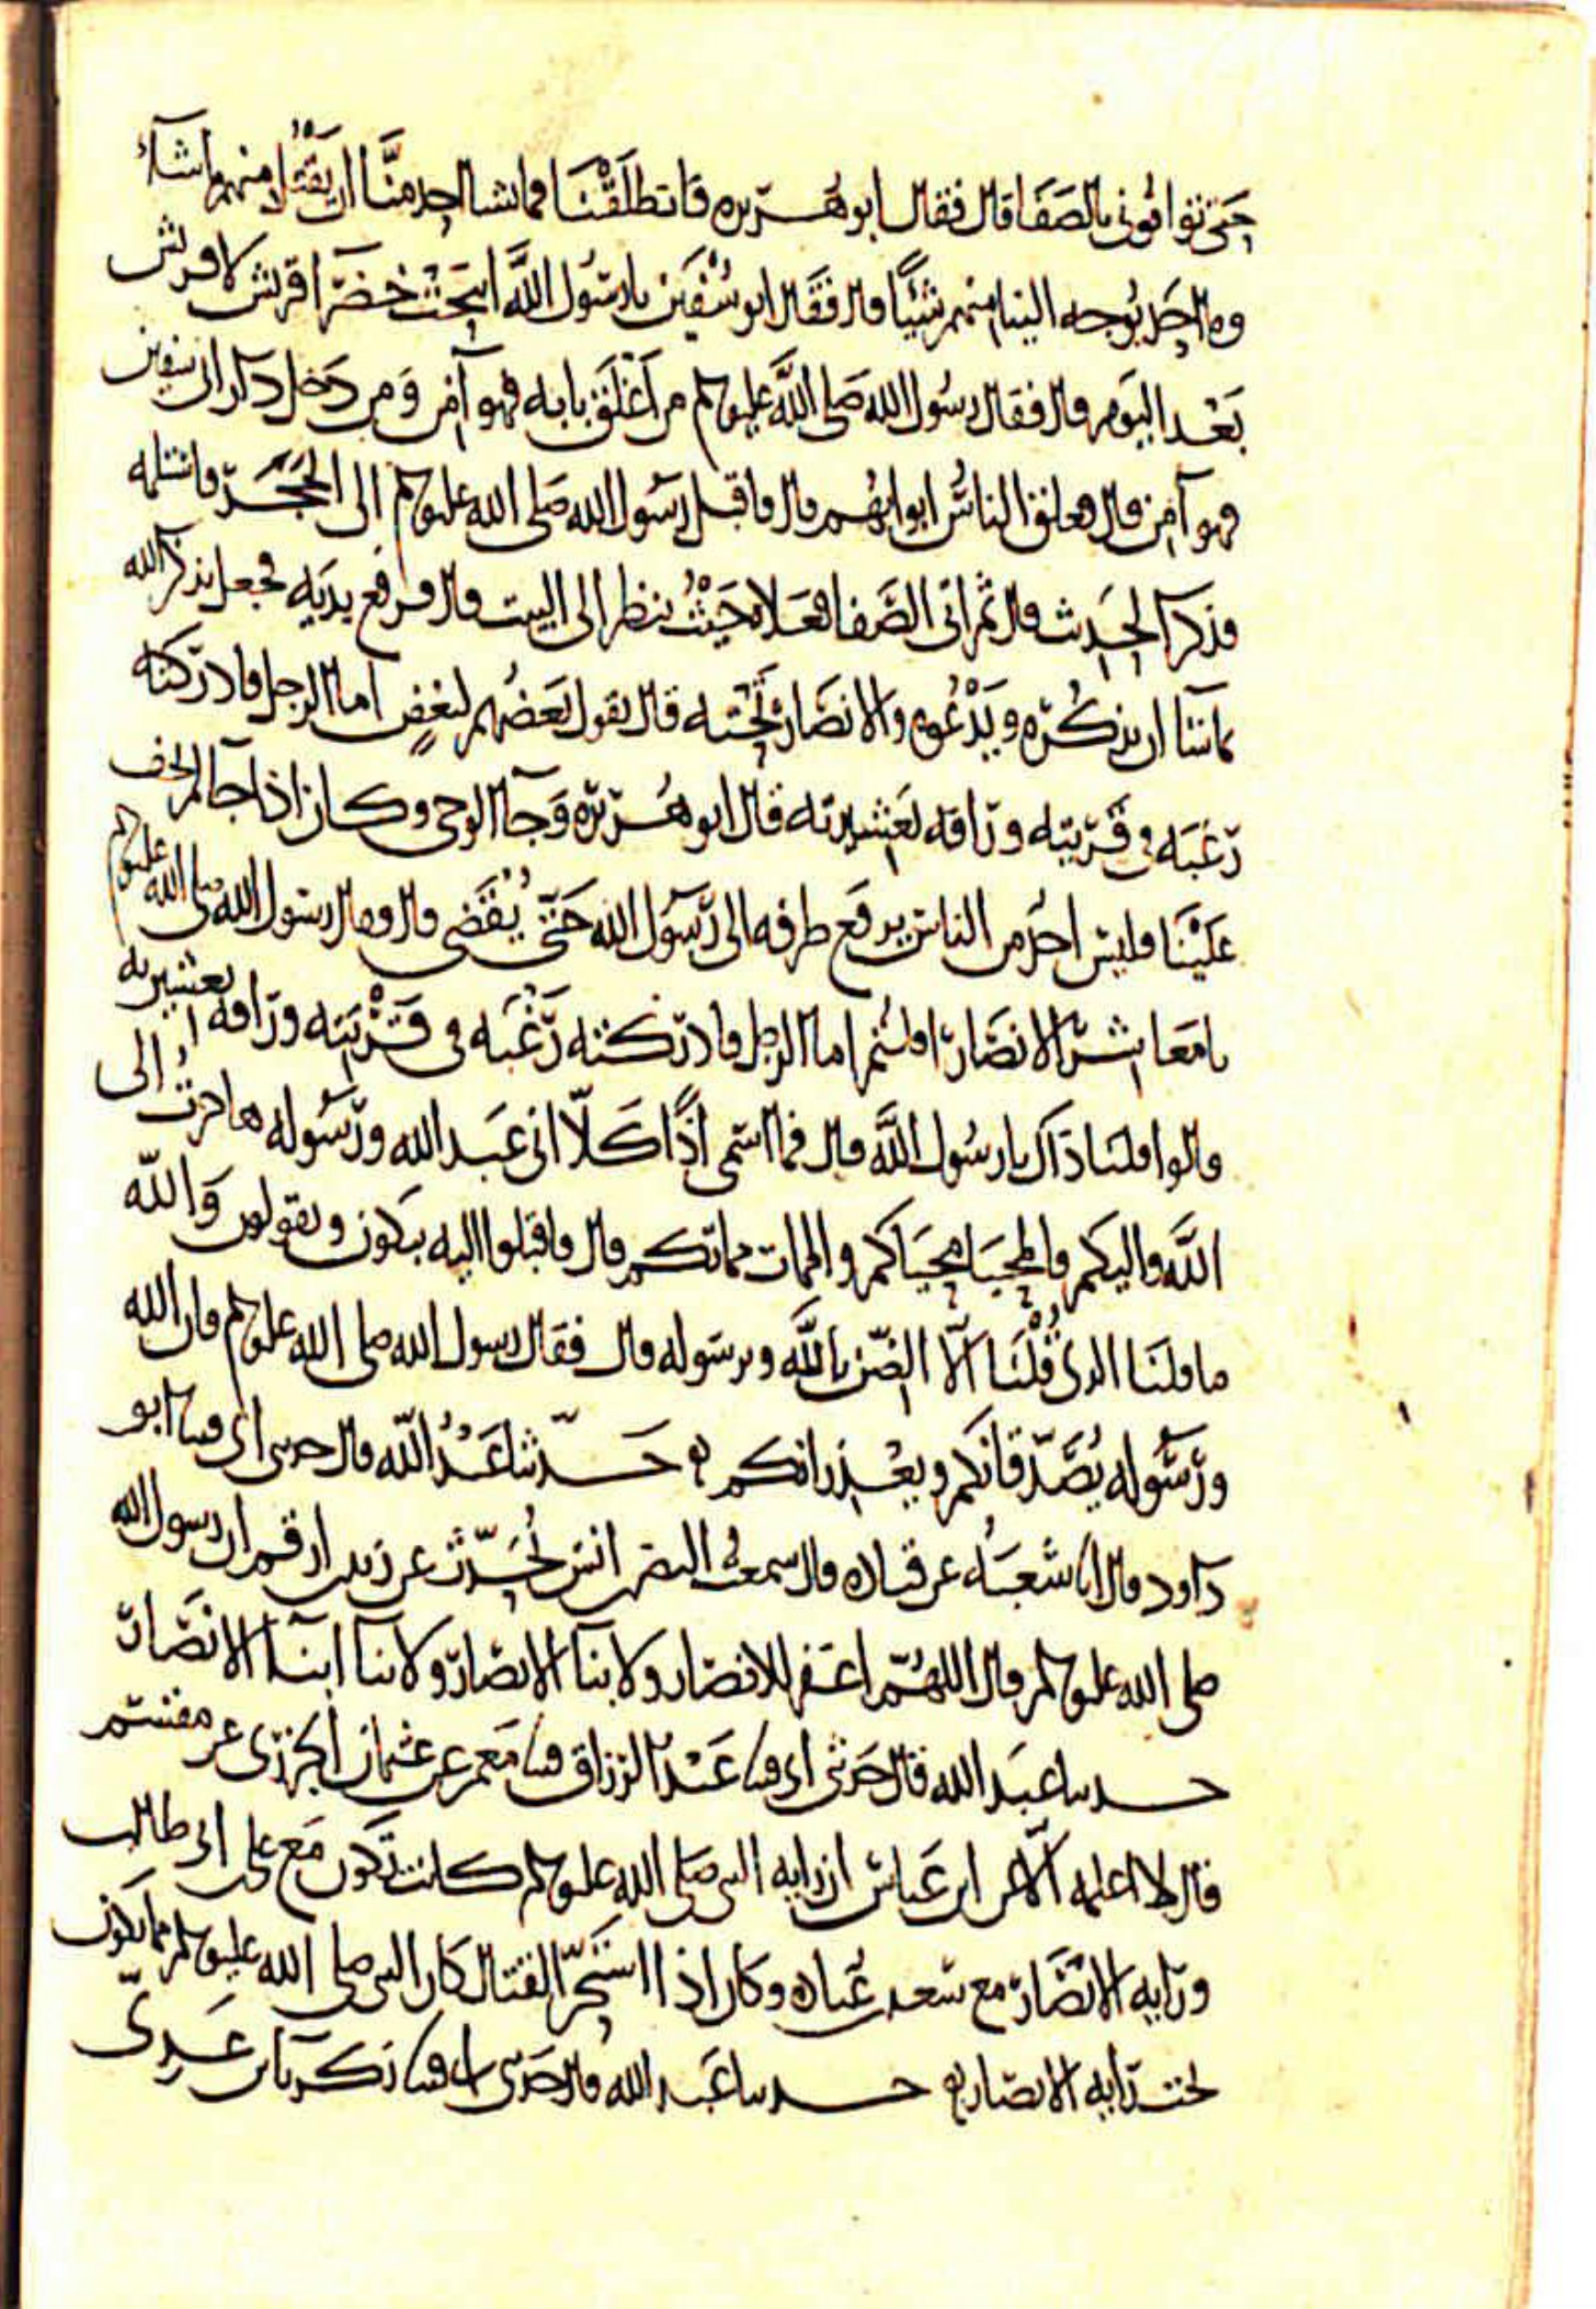 حتى توافوني بالصفا قال فقال ابو هريره فانطلقنا فما يشا احد منا ان يقتل منهم ما شاء
وما احد يوجه الينا منهم شيئا قال فقال ابو سفين يا رسول الله ابيحت خضرا قريش لا قريش
بعد اليوم قال فقال رسول الله صلى الله عليه وسلم من اغلق بابه فهو آمن ومن دخل دار ابي سفين
فهو آمن قال فغلق الناس ابوابهم قال فاقبل رسول الله صلى الله عليه وسلم الى الحجر فاستلمه
فذكر الحديث قال ثم اتى الصفا فعلاه حيث ينظر الى البيت قال فرفع يديه فجعل يذكر الله
ما شا ان يذكره ويدعوه والانصار تحته قال يقول بعضهم لبعض اما الرجل فادركته
رغبه في قريته ورافه بعشيرته قال ابو هريره وجآ الوحي وكان اذا جآ لم يخف
علينا فليس احد من الناس يرفع طرفه الى رسول الله حتى يقضى قال وقال رسول الله صلى الله عليه وسلم
يا معاشر الانصار اقلتم اما الرجل فادركته رغبه في قريته ورافه بعشيرته
قالوا قلنا ذاك يا رسول الله قال فما اسمي اذًا كلّا اني عبد الله ورسوله هاجرت الى
الله واليكم فالمحيا محياكم والممات مماتكم قال فاقبلوا اليه يبكون ويقولون والله
ما قلنا الذي قلنا الا الضن بالله وبرسوله قال فقال رسول الله صلى الله عليه وسلم فان الله
ورسوله يصدقانكم ويعذرانكم حدثنا عبد الله قال حدثني ابي قثنا ابو
داود قال انا شعبه عن قتاده قال سمعت النضر بن انس يحدث عن زيد بن ارقم ان رسول الله
صلى الله عليه وسلم قال اللهم اغفر للانصار ولابنآ الانصار ولابنآ ابنآ الانصار
حدثنا عبد الله قال حدثني ابي قثنا عبد الرزاق قثنا معمر عن عثمان الجزري عن مقسم
قال لا اعلمه الا عن ابن عباس ان رايه النبي صلى الله عليه وسلم كانت تكون مع علي بن ابي طالب
ورايه الانصار مع سعد بن عباده وكان اذا استحر القتال كان النبي صلى الله عليه وسلم مما يكون
تحت رايه الانصار حدثنا عبد الله قال حدثني ابي قثنا زكريا بن عدي